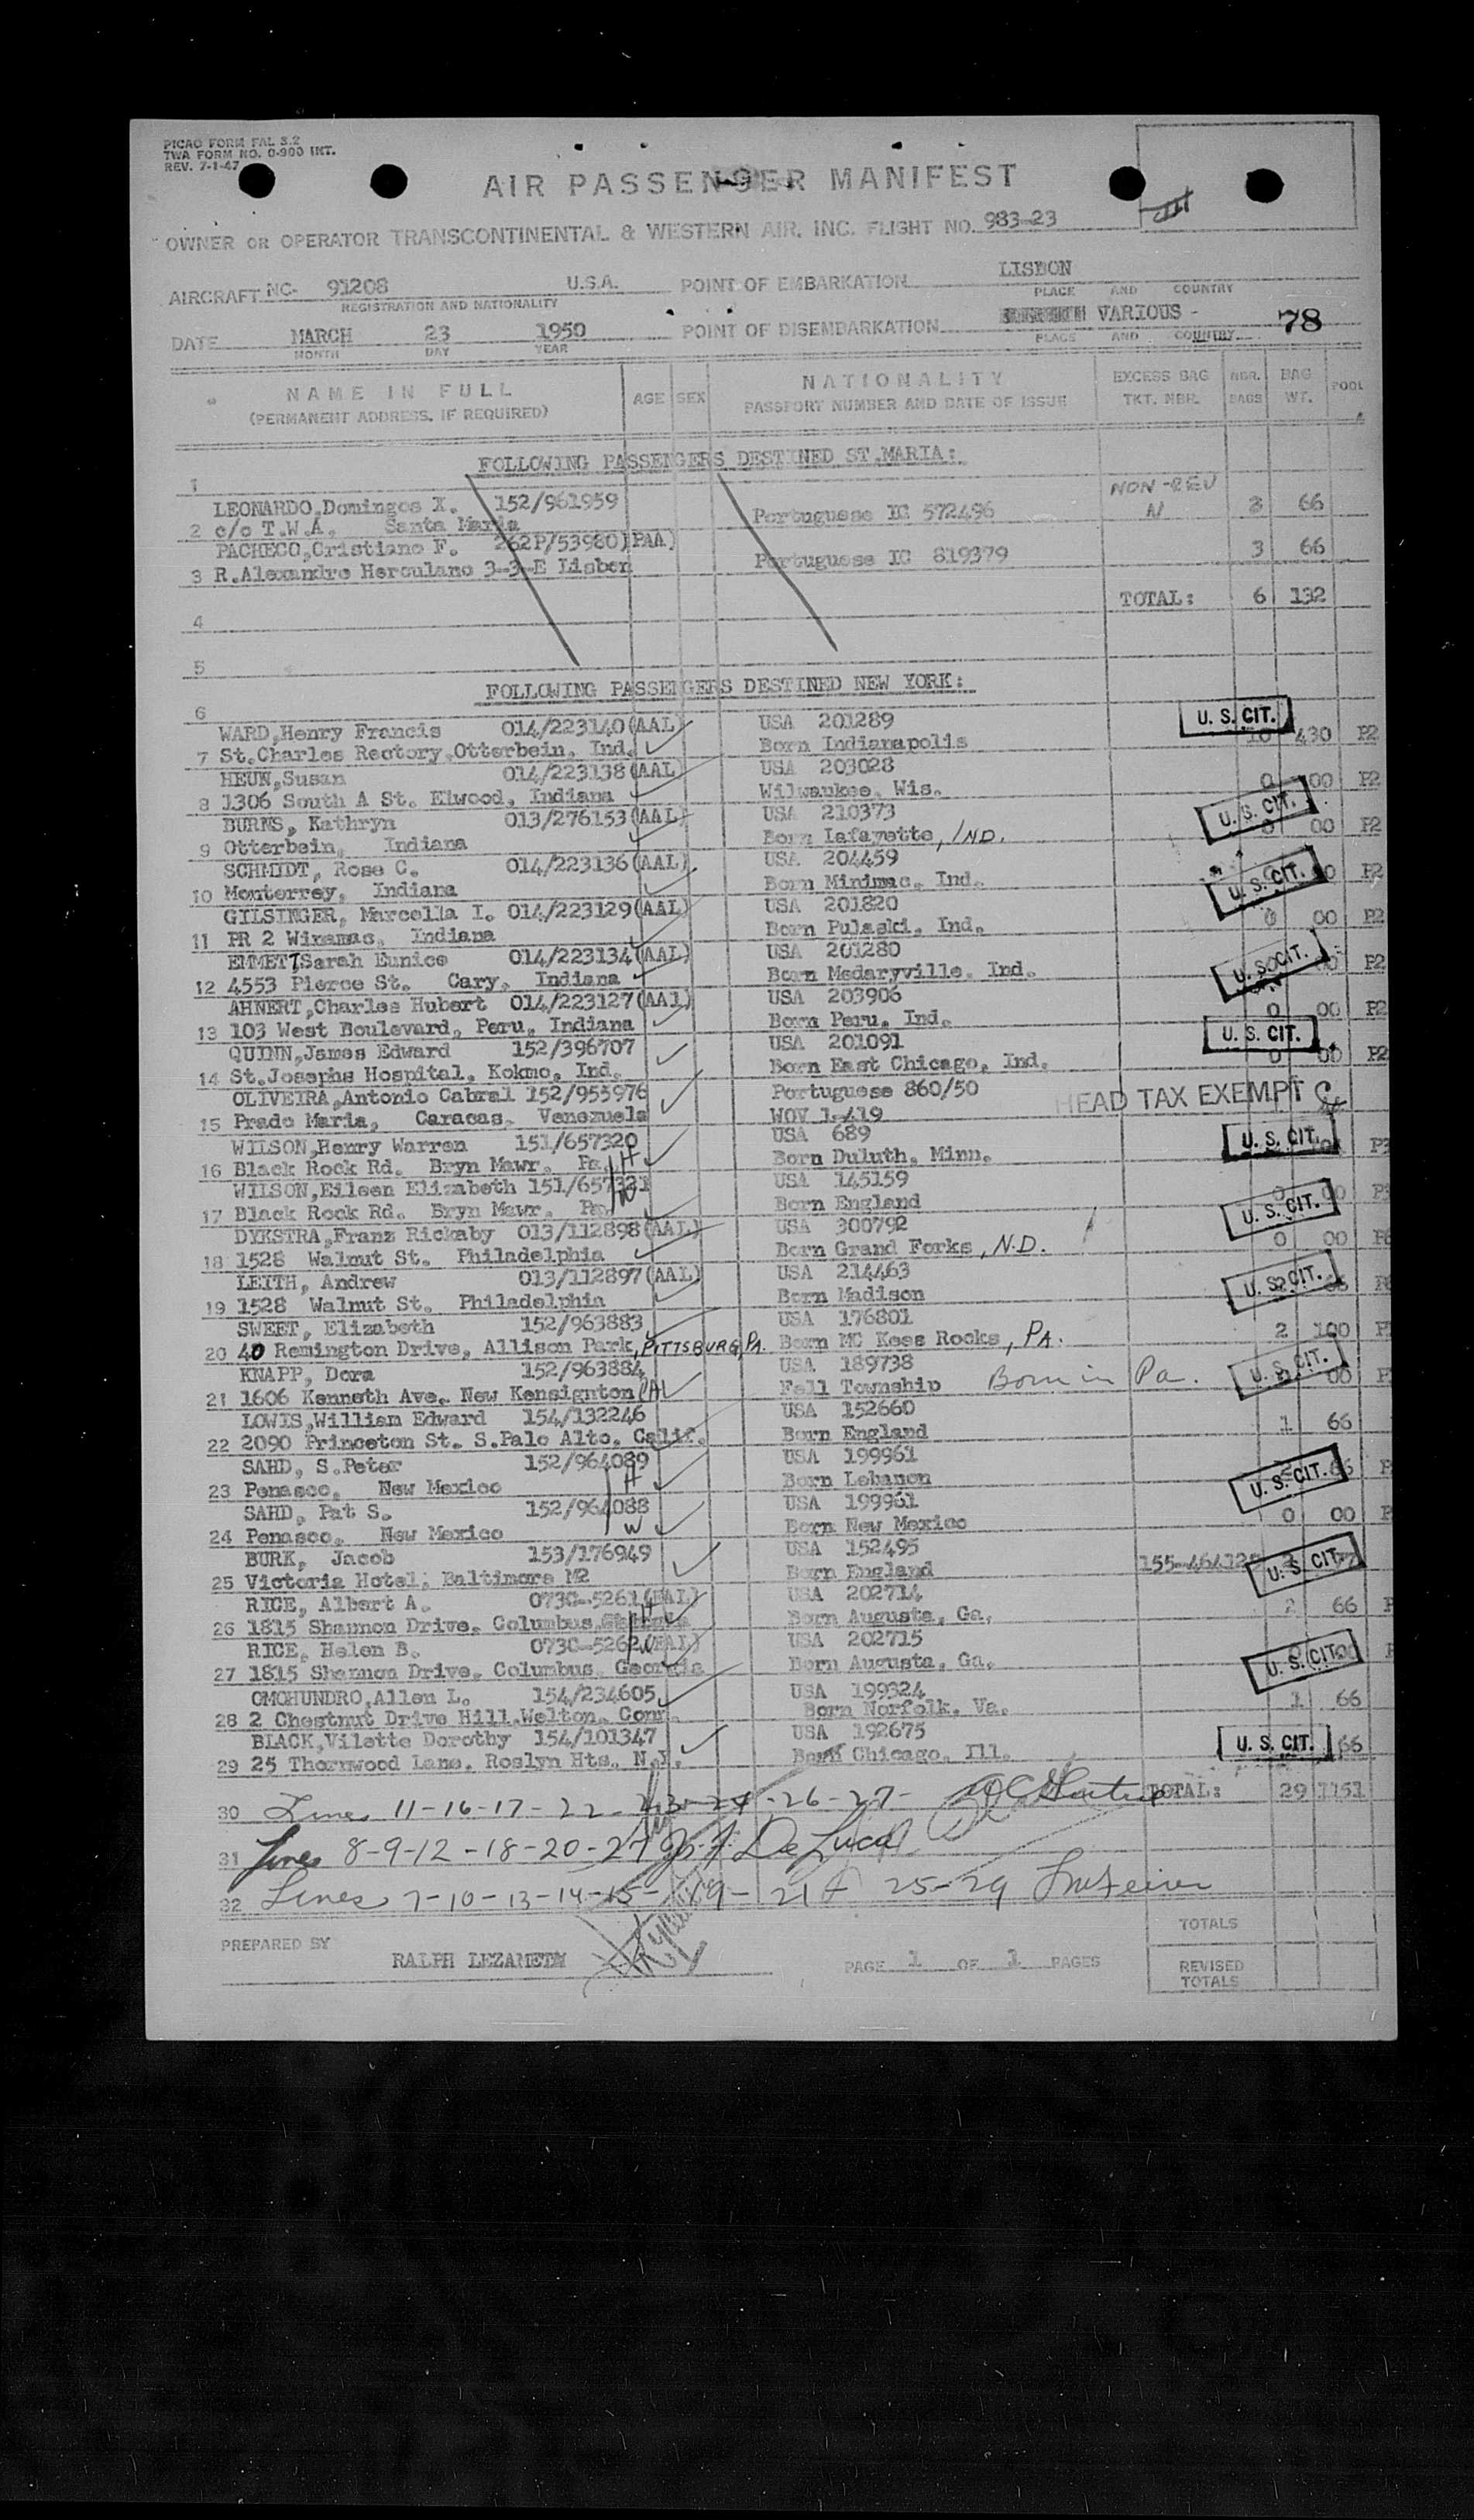 PICAO FORM FAL 3.2
TWA FORM NO. 0-900 INT.
REV. 7-1-47
AIR PASSENGER MANIFEST
OWNER OR OPERATOR TRANSCONTINENTAL & WESTERN AIR, INC. FLIGHT NO. 983-23
AIRCRAFT NC- 91208 U.S.A. POINT OF EMBARKATION LISBON
REGISTRATION AND NATIONALITY PLACE AND COUNTRY
DATE MARCH 23 1950 POINT OF DISEMBARKATION VARIOUS - 78
MONTH DAY YEAR PLACE AND COUNTRY
NAME IN FULL AGE SEX NATIONALITY EXCESS BAG NBR. BAG POOL
(PERMANENT ADDRESS, IF REQUIRED) PASSPORT NUMBER AND DATE OF ISSUE TKT. NBR. BAGS WT.
FOLLOWING PASSENGERS DESTINED ST.MARIA:
1
LEONARDO,Domingos X. 152/961959 Portuguese IC 572496 NON-REV 3 66
2 c/o T.W.A. Santa Maria
PACHECO,Cristiano F. 262P/53980)PAA) Portuguese IC 819379 3 66
3 R.Alexandre Herculano 3-3-E Lisbon
TOTAL: 6 132
4
5
FOLLOWING PASSENGERS DESTINED NEW YORK:
6
WARD,Henry Francis 014/223140(AAL) USA 201289 U. S. CIT.
7 St.Charles Rectory,Otterbein, Ind. Born Indianapolis 10 430 P2
HEUN,Susan 014/223138(AAL) USA 203028
8 1306 South A St. Elwood, Indiana Wilwaukee, Wis. 0 00 P2
BURNS, Kathryn 013/276153(AAL) USA 210373 U. S. CIT.
9 Otterbein, Indiana Born Lafayette, IND. 0 00 P2
SCHMIDT, Rose C. 014/223136(AAL) USA 204459
10 Monterrey, Indiana Born Minimac, Ind. U. S. CIT. P2
GILSINGER, Marcella I. 014/223129(AAL) USA 201820
11 RR 2 Winamac, Indiana Born Pulaski, Ind. 0 00 P2
EMMETT,Sarah Eunice 014/223134(AAL) USA 201280
12 4553 Pierce St. Gary, Indiana Born Medaryville, Ind. U. S. CIT. P2
AHNERT,Charles Hubert 014/223127(AAl) USA 203906
13 103 West Boulevard, Peru, Indiana Born Peru, Ind. 0 00 P2
QUINN,James Edward 152/396707 USA 201091 U. S. CIT.
14 St.Josephs Hospital, Kokmo, Ind. Born East Chicago, Ind. 0 00 P2
OLIVEIRA,Antonio Cabral 152/955976 Portuguese 860/50 HEAD TAX EXEMPT
15 Prado Maria, Caracas, Venezuela WOV 1-419
WILSON,Henry Warren 151/657320 USA 689 U. S. CIT.
16 Black Rock Rd. Bryn Mawr, Pa. H Born Duluth, Minn.
WILSON,Eileen Elizabeth 151/657321 USA 145159
17 Black Rock Rd. Bryn Mawr, Pa. W Born England
DYKSTRA,Franz Rickaby 013/112898(AAL) USA 300792 U. S. CIT.
18 1528 Walnut St. Philadelphia Born Grand Forks, N.D. 0 00
LEITH, Andrew 013/112897(AAL) USA 214463
19 1528 Walnut St. Philadelphia Born Madison U. S. CIT.
SWEET, Elizabeth 152/963883 USA 176801
20 40 Remington Drive, Allison Park, PITTSBURG, PA. Born MC Kees Rocks, PA. 2 100
KNAPP, Dora 152/963884 USA 189738
21 1606 Kenneth Ave. New Kensignton PA Fall Township Born in Pa. U. S. CIT. 00
LOWIS,William Edward 154/132246 USA 152660
22 2090 Princeton St. S.Palo Alto, Calif. Born England 1 66
SAHD, S.Peter 152/964089 USA 199961
23 Penasco, New Mexico H Born Lebanon U. S. CIT.
SAHD, Pat S. 152/964088 USA 199961
24 Penasco, New Mexico W Born New Mexico 0 00
BURK, Jacob 153/176949 USA 152495
25 Victoria Hotel, Baltimore M2 Born England U. S. CIT.
RICE, Albert A. 0730-5261(EAL) USA 202714
26 1815 Shannon Drive, Columbus, H Born Augusta, Ga. 2 66
RICE, Helen B. 0730-5262(EAL) USA 202715
27 1815 Shannon Drive, Columbus, Georgia Born Augusta, Ga. U. S. CIT.
OMOHUNDRO,Allen L. 154/234605 USA 199324
28 2 Chestnut Drive Hill,Welton, Conn. Born Norfolk, Va. 1 66
BLACK,Vilette Dorothy 154/101347 USA 192675
29 25 Thornwood Lane, Roslyn Hts, N.Y. Born Chicago, Ill. U. S. CIT. 66
30 Lines 11-16-17-22-23-24-26-27- TOTAL: 29 1151
31 Lines 8-9-12-18-20-27 De Luca
32 Lines 7-10-13-14-15-19-21 25-29
TOTALS
PREPARED BY
RALPH LEZAMETA PAGE 1 OF 1 PAGES
REVISED
TOTALS